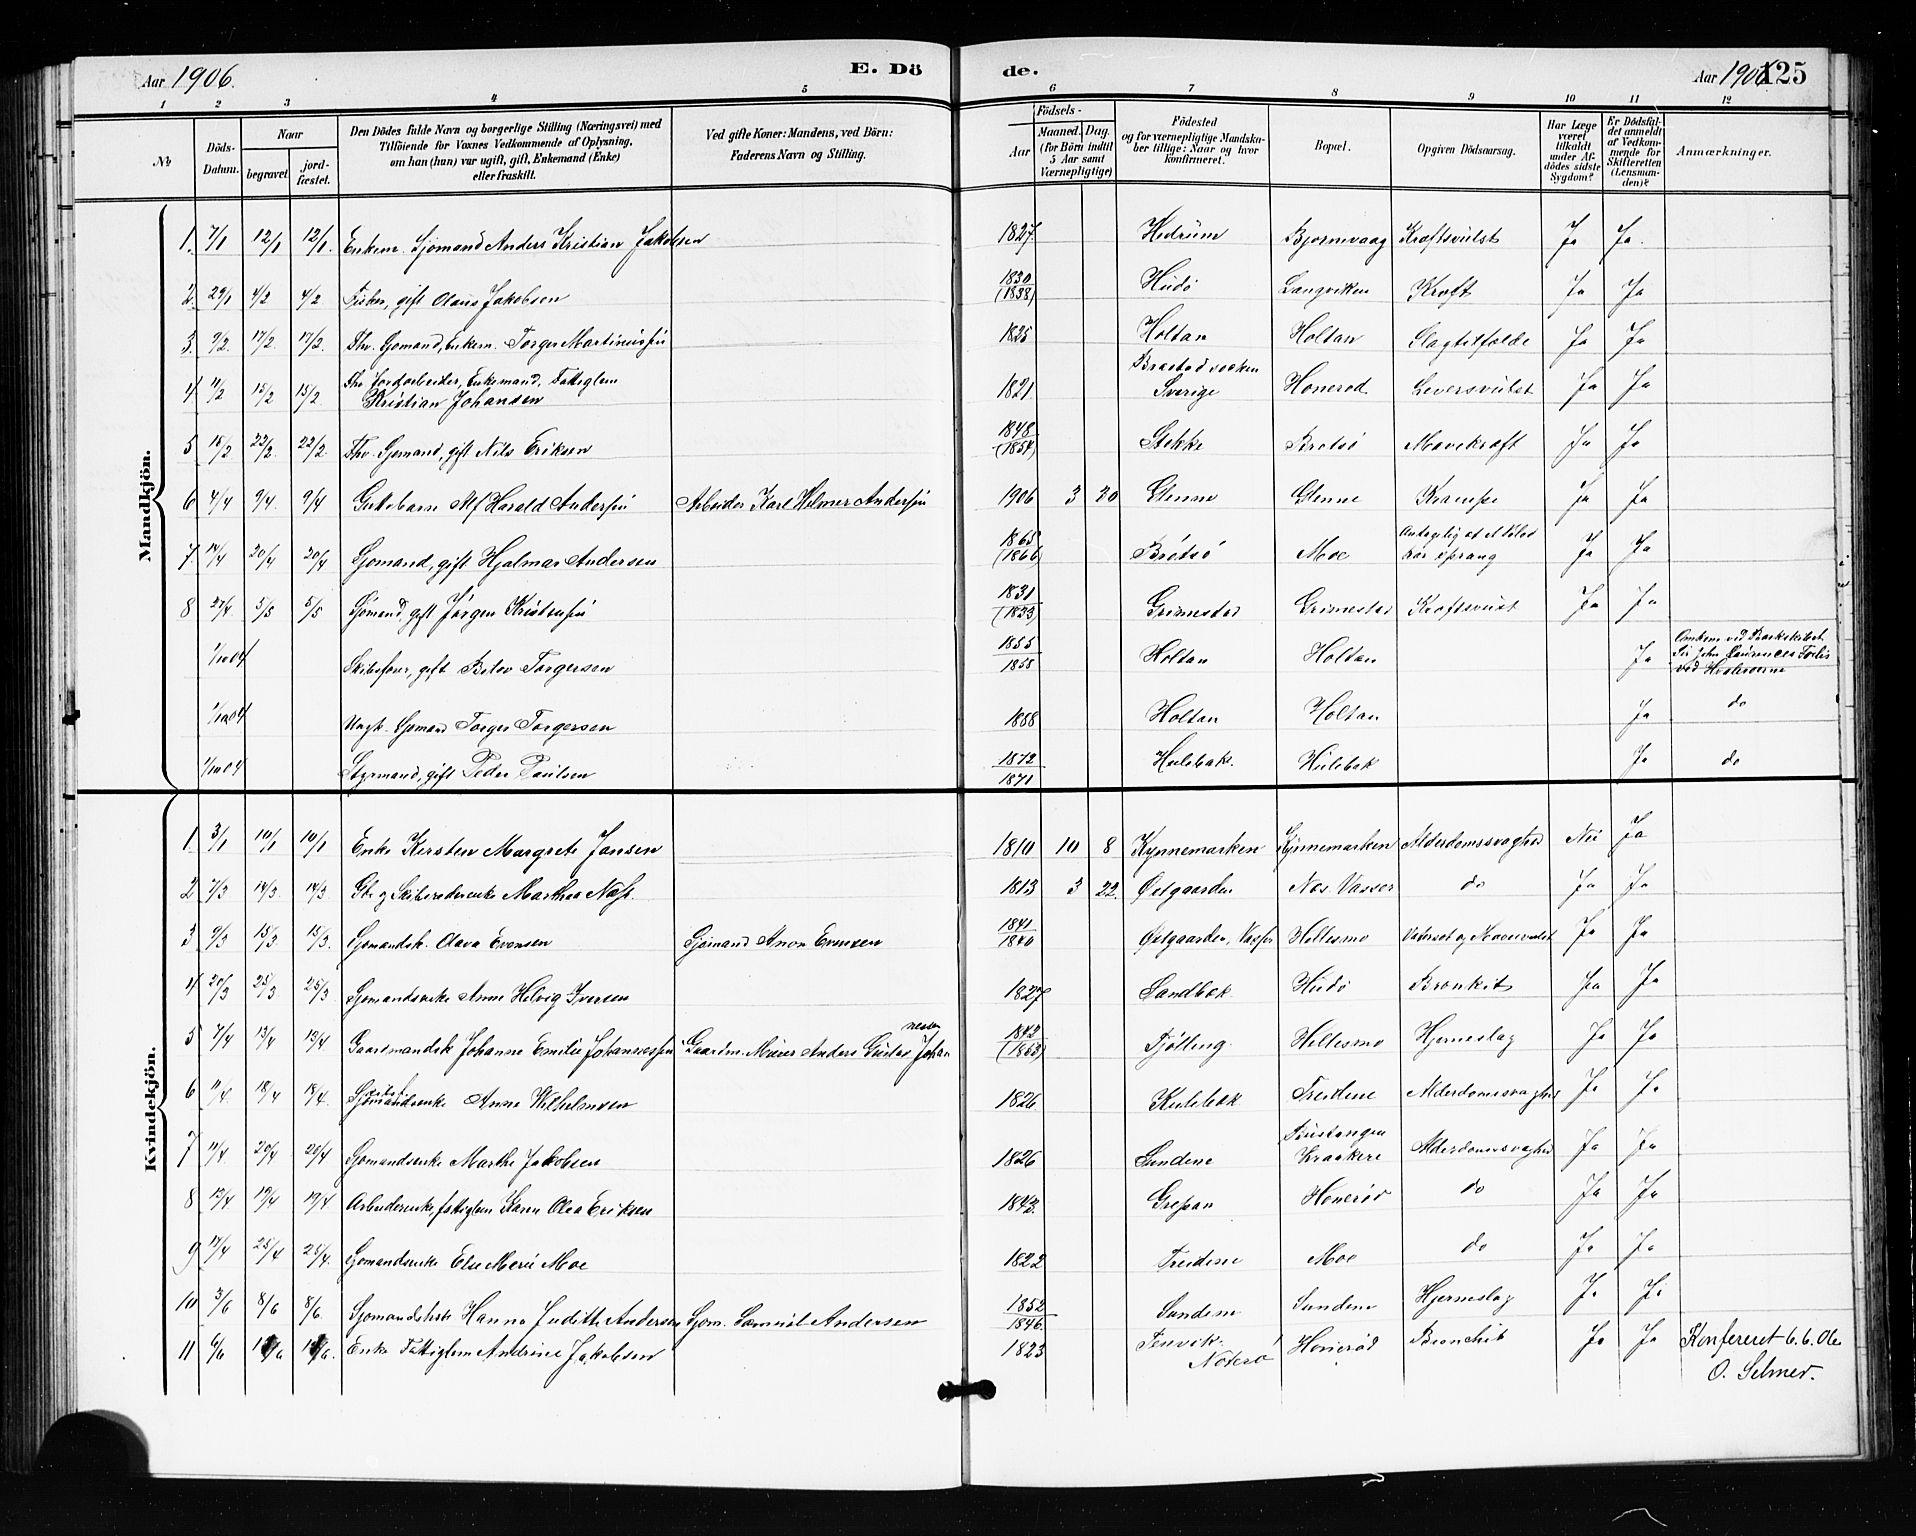 Aar 1906. E. Dö de. Aar 1906 125
1 2 3 4 5 6 7 8 9 10 11 12
No
Döds-Datum.
Naar
begravet
jord-fæstet.
Den Dödes fulde Navn og borgerlige Stilling (Næringsvei) med
Tilföiende for Voxnes Vedkommende af Oplysning,
om han (hun) var ugift, gift, Enkemand (Enke)
eller fraskilt.
Ved gifte Koner: Mandens, ved Börn:
Faderens Navn og Stilling.
Födsels-
Aar
Maaned. Dag.
(for Börn indtil
5 Aar samt
Værnepligtige)
Födested
og for værnepligtige Mandska-
ber tillige: Naar og hvor
konfirmeret.
Bopæl.
Opgiven Dödsaarsag.
Har Læge
været
tilkaldt
under Af-
dödes sidste
Sygdom?
Er Dödsfal-
det anmeldt
af Vedkom-
mende for
Skifteretten
(Lensman-
den)?
Anmærkninger.
Mandkjön.
1. 7/1 12/1 12/1. Enkem. Sjömand Anders Kristian Jakobsen 1827. Hedrum Bjørnevaag Kræftsvulst Ja Ja.
2. 29/1 4/2 4/2 Fisker, gift Olaus Jakobsen 1830 (1838) Hudø Langviken Kræft Ja Ja
3. 9/2. 17/2. 17/2. Fhv. Sjømand, Enkem. Torger Martinussen 1825 Holtan Holtan Slagtilfælde Ja Ja
4 11/2 15/2 15/2 Fhv Jordarbeider, Enkemand, Fattiglem
Kristian Johansen 1821 Sverige Honerød Leversvulst Ja Ja
5 18/2 22/2 22/2. Fhv. Sjømand, gift Nils Eriksen 1848 (1854) Stokke Brøtsø Mavekræft Ja Ja
6 4/4 9/4. 9/4 Pikebarn Alf Harald Andersen Arbeider Karl Hilmer Andersen 1906 3 20 Glenne Glenne Krampe Ja Ja
7. 14/4 20/4 20/4 Sjømand, gift Hjalmar Andersen 1865 (1866) Brøtsø Moe Antagelig at et Blod
aar sprang Ja Ja
8 27/4 5/5 5/5 Sjømand, gift Jørgen Kristensen 1831 (1833) Grimestad Grimestad Kræftsvulst Ja Ja
1/10 04 Skibsfører, gift Torgersen 1855 1858 Holtan Holtan Ja Omkom ved Barkskibet
Sir John Laurences Forlis
ved
1/10 04 Ungk. Sjømand Torger Torgersen 1888 Holtan Holtan Ja do
1/10 04 Styrmand, gift Peder Paulsen 1872 1871 Hulebak. Hulebak Ja do
Kvindekjön.
1 3/1 10/1 10/1 Enke Kersten Margrete Jansen 1810 10 8 Kynnemarken Kynnemarken Alderdomssvaghed Nei Ja
2 7/3 14/3 14/3 Gbr. og Skibsrederenke Marthea Næs. 1813 3 22. Østgaarden Nes. Vasser do Ja Ja
3 9/3 15/3 15/3. Sjømandsk. Olava Evensen Sjømand Anon Evensen 1841 1840 Østgaarden, Vasser Heltesmo Vatersot og Mavesvulst Ja Ja
4 20/3 25/3 25/3 Sjømandsenke Anne Helvig Iversen 1827 Sandbæk Hudø Bronkit Ja Ja
5 7/4 13/4 13/4 Gaardmandsk. Johanne Emilie Johannessen Gaardm. Murer Anders Gustav Johan
nessen 1842 (1863) Tjølling. Heltesmo Hjerneslag Ja Ja
6 11/4 18/4 18/4. Sjømandsenke Anne Wilhelmsen 1826. Hulebak Treidene Alderdomssvaghed Ja Ja
7 11/4 20/4 20/4 Sjømandsenke Marthe Jakobsen 1826 Sundene Bustangen
Kraakere Alderdomssvaghed Ja Ja
8 13/4 19/4 19/4 Arbeiderenke, fattiglem Karen Olea Eriksen 1843. Grepan Honerød do Ja Ja
9 17/4 25/4 25/4. Sjømandsenke Else Marie Moe 1822 Treidene Moe do Ja Ja
10 3/6 8/6 8/6. Sjømandskone Hanna Judith Andersen Sjøm. Samuel Andersen 1852 1846. Sundene Sundene Hjerneslag Ja Ja
11 6/6 Enke Fattiglem Andrine Jakobsen 1823 Tenvik.
Nøterø Honerød Bronchit Ja Ja Konfereret 6.6.06
O. Selmer.